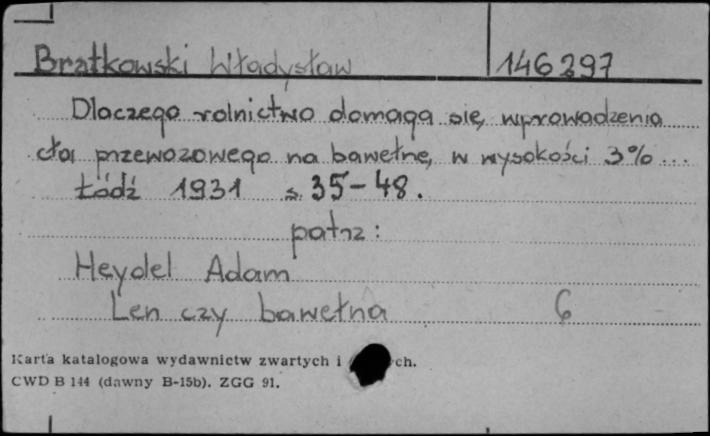 Bratkowski Władysław
146297
Dlaczego rolnictwo domaga się wprowadzenia
cła przewozowego na bawełnę, w wysokości 3% ...
Łódź 1931 s. 35-48.
patrz:
Heydel Adam
Len czy bawełna 6
Karta katalogowa wydawnictw zwartych i ch.
CWD B 144 (dawny B-15b). ZGG 91.